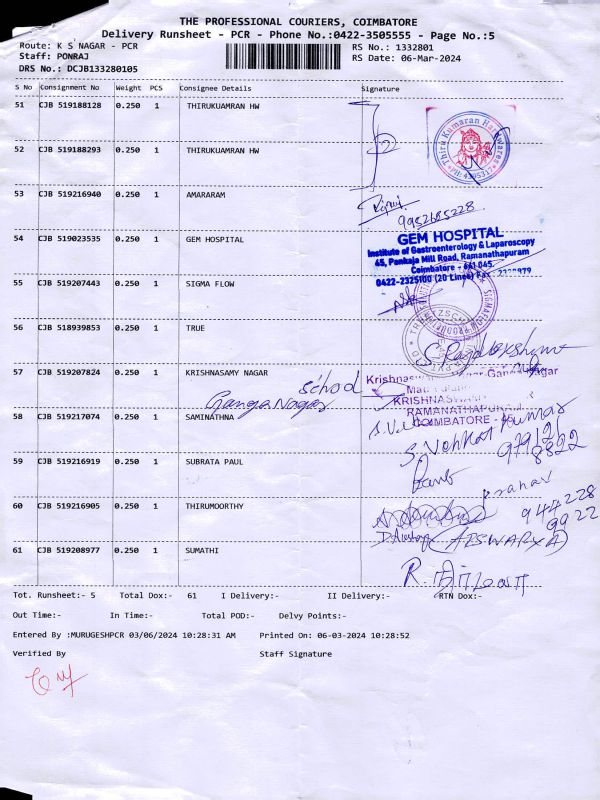 THE PROFESSIONAL COURIERS, COIMBATORE
Delivery Runsheet - PCR - Phone No.:0422-3505555 - Page No.:5
Route: K S NAGAR - PCR RS No.: 1332801
Staff: PONRAJ RS Date: 06-Mar-2024
DRS No.: DCJB133280105
S No Consignment No Weight PCS Consignee Details Signature
51 CJB 519188128 0.250 1 THIRUKUAMRAN HW
Thiru Kumaran Hardwares
52 CJB 519188293 0.250 1 THIRUKUAMRAN HW
53 CJB 519216940 0.250 1 AMARARAM
9952685228
54 CJB 519023535 0.250 1 GEM HOSPITAL
GEM HOSPITAL
Institute of Gastroenterology & Laparoscopy
45, Pankaja Mill Road, Ramanathapuram
Coimbatore - 641 045.
0422-2325100 (20 Lines) Fax
55 CJB 519207443 0.250 1 SIGMA FLOW
56 CJB 518939853 0.250 1 TRUE
57 CJB 519207824 0.250 1 KRISHNASAMY NAGAR
School
Ganga Nagar
KRISHNASWAMY
RAMANATHAPURAM
COIMBATORE - 45
58 CJB 519217074 0.250 1 SAMINATHNA
S. Venkat Kumar
59 CJB 519216919 0.250 1 SUBRATA PAUL
60 CJB 519216905 0.250 1 THIRUMOORTHY
Pranav
944228
9922
61 CJB 519208977 0.250 1 SUMATHI
Tot. Runsheet:- 5 Total Dox:- 61 I Delivery:- II Delivery:- RTN Dox:-
Out Time:- In Time:- Total POD:- Delvy Points:-
Entered By :MURUGESHPCR 03/06/2024 10:28:31 AM Printed On: 06-03-2024 10:28:52
Verified By Staff Signature